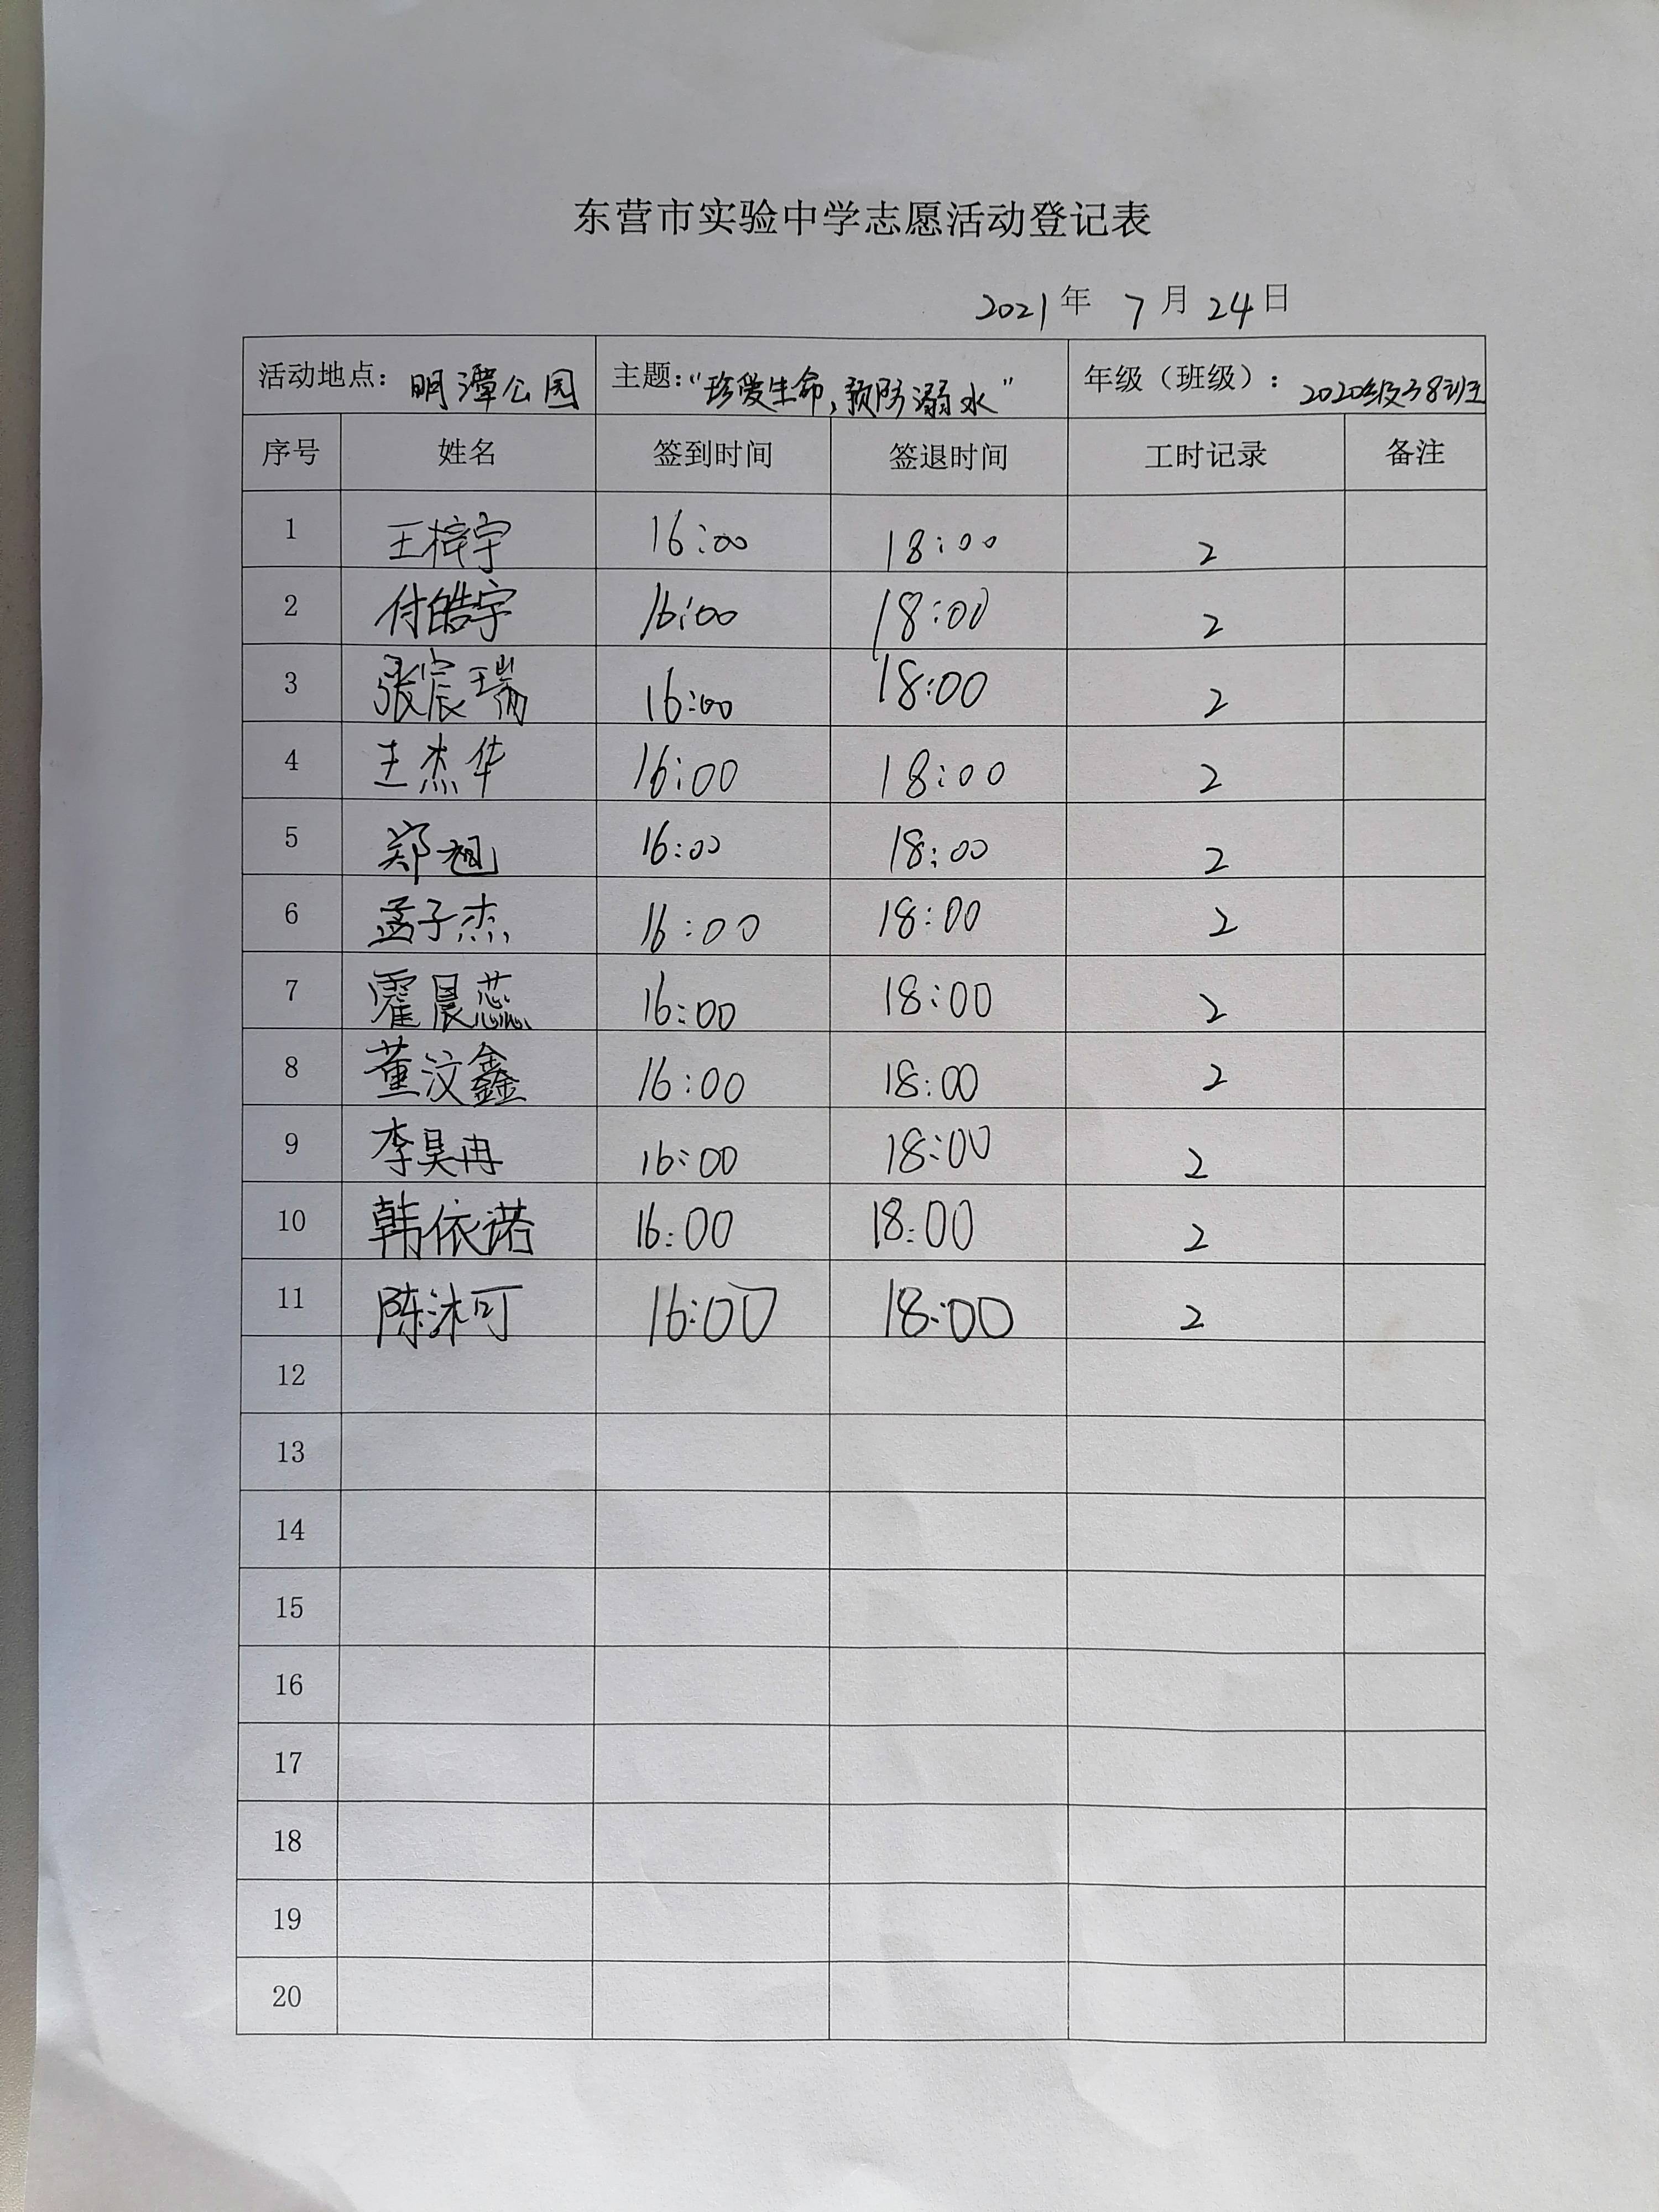 东营市实验中学志愿活动登记表
2021年 7月 24日
活动地点：明潭公园 主题：“珍爱生命，预防溺水” 年级（班级）：2020级38班
序号 姓名 签到时间 签退时间 工时记录 备注
1 王梓宇 16:00 18:00 2
2 付皓宇 16:00 18:00 2
3 张宸瑞 16:00 18:00 2
4 王杰华 16:00 18:00 2
5 郑旭 16:00 18:00 2
6 孟子杰 16:00 18:00 2
7 霍晨蕊 16:00 18:00 2
8 董汶鑫 16:00 18:00 2
9 李昊冉 16:00 18:00 2
10 韩依诺 16:00 18:00 2
11 陈沐可 16:00 18:00 2
12
13
14
15
16
17
18
19
20